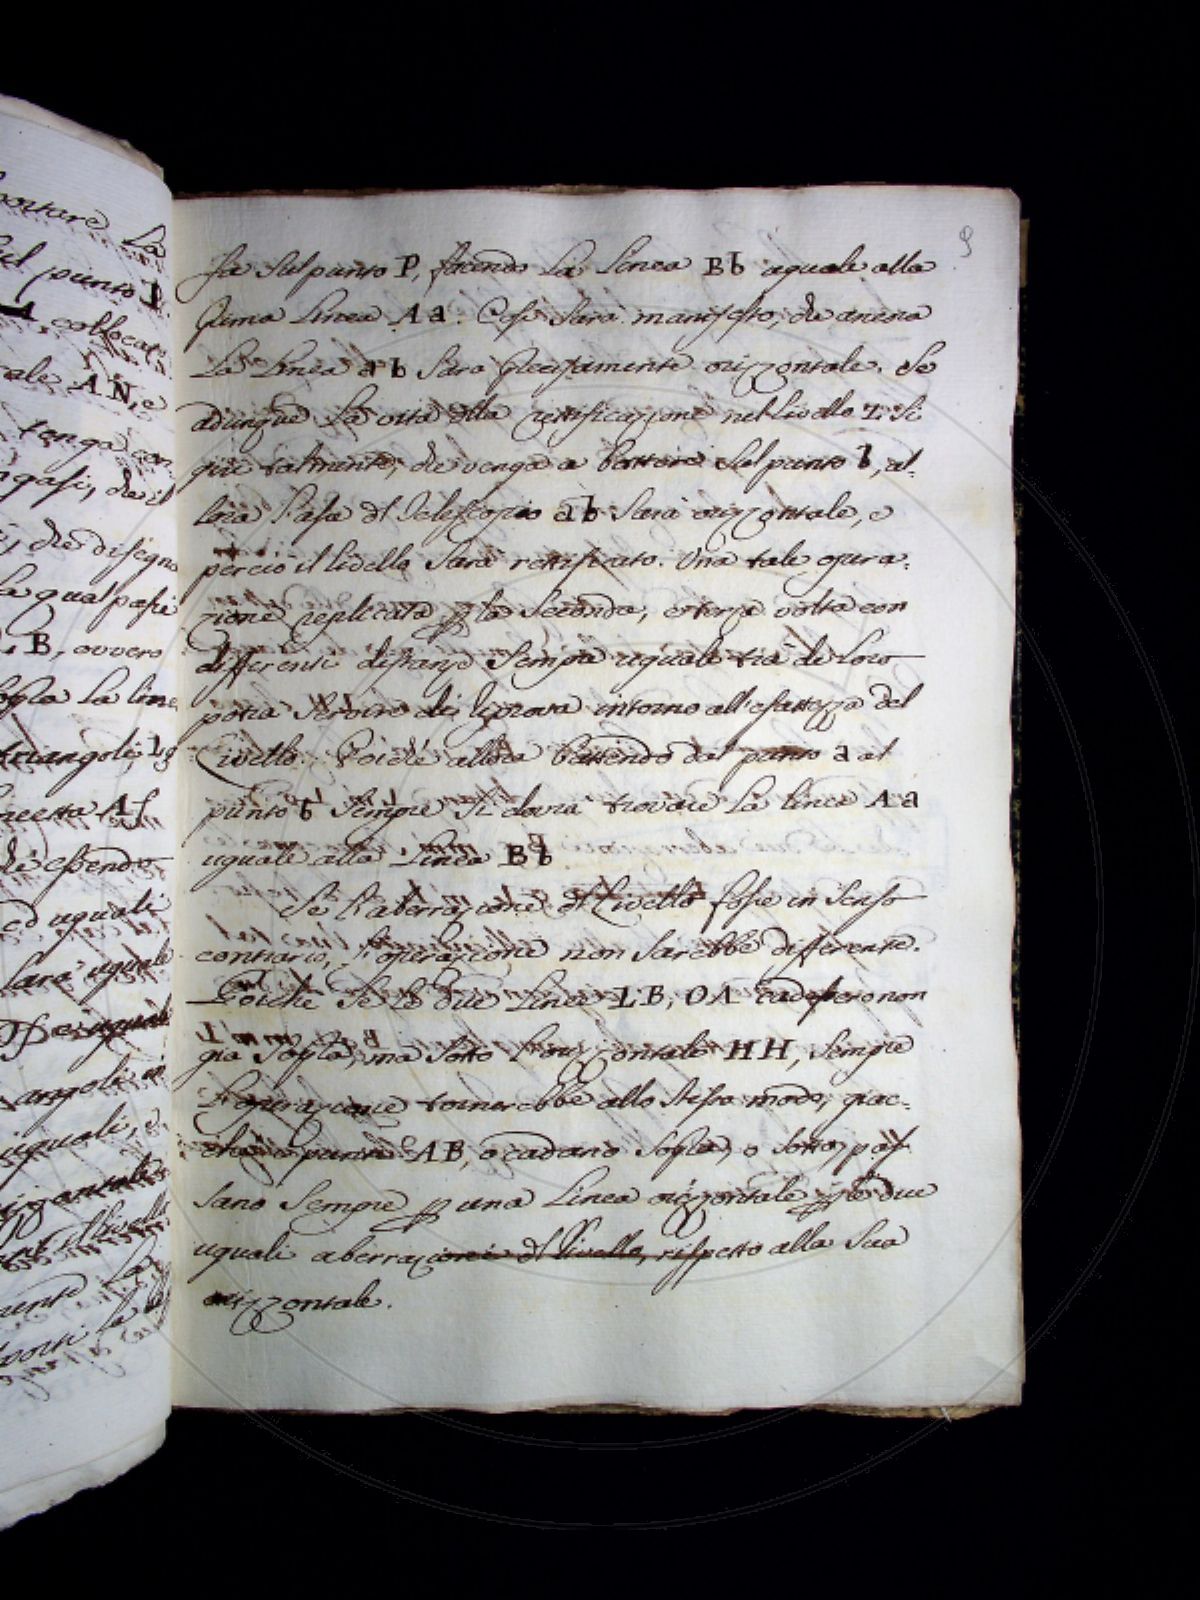 9
sa sul punto P, facendo la linea Bb uguale alla
prima linea Aa. Così sarà manifesto, che ancora
la linea ab sarà precisamente orizzontale. Se
adunque la vita della rettificazione nel livello L si
giri talmente, che venga a battere sul punto b, al-
lora l'asse dl Telescopio ab sarà orizzontale, e
perciò il livello sarà rettificato. Una tale opera-
zione replicata p la seconda, e terza volta con
differenti distanze sempre uguale trà di loro
potrà servire di riprova intorno all'esattezza del
Livello. Poiché allora battendo dal punto a al
punto b sempre si dovrà trovare la linea Aa
uguale alla linea Bb
Se l'aberrazione dl Livello fosse in senso
contrario, l'operazione non sarebbe differente.
Poiché se le due linee LB, OA cadessero non
già sopra, ma sotto l'orizzontale HH, sempre
l'operazione tornerebbe allo stesso modo, giac-
che i punti AB, o cadano sopra, o sotto, pas
sano sempre p una linea orizzontale p le due
uguali aberrazioni dl livello, rispetto alla sua
orizzontale.
portare la
sul punto
collocat
ale AN, e
tenga con
che il
che disegno
la qual passi
B, ovvero
sopra la line
triangoli
essendo
ed uguali
sarà uguale
uguali
angoli in
uguali, e